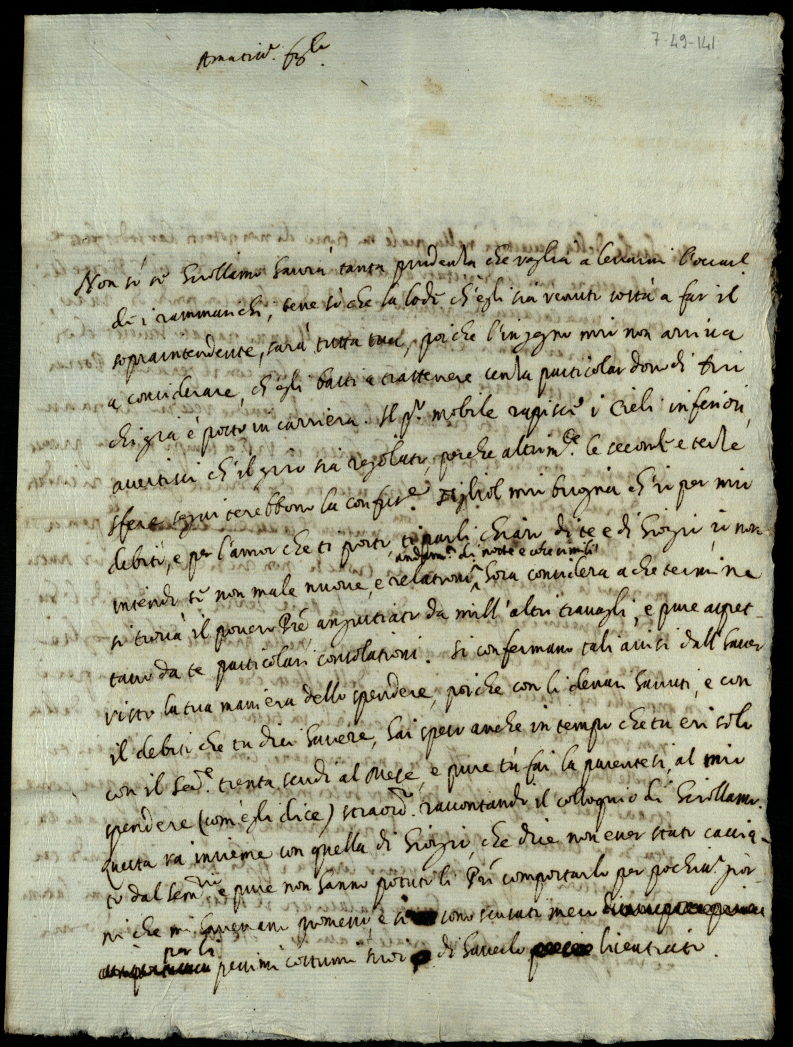 7-49-141
Amatiss.o fig.lo
Non sò se Girollamo haurà tanta prudenza che vaglia a levarmi l'occas.e
de i rammarichi, bene sò che la lode ch'egli sia venuto costà a far il
sopraintendente, sarà tutta tua, poiche l'ingegno mio non arriva
a considerare, ch'egli basti a trattenere senza particolar dono di Dio
chi già è posto in carriera. Il p.o mobile rapisce i Cieli inferiori,
avertisci ch'il giro sia regolato, perche altrim.te le seconde e terze
sfere seguiterebbono la confus.e Figliol mio bisogna ch'io per mio
debito, e per l'amor che ti porto, ti parli chiaro di te e di Giorgio, io non
andam.ti di notte e cose simili
intendo se non male nuove, e relationi, hora considera a che termine
si trova il povero Pre, angustiato da mill'altri travagli, e pure aspet-
tavo da te particolari consolationi. Si confermano tali avisi dall'haver
visto la tua maniera dello spendere, perche con li denari havuti, e con
il debito che tu dici havere, hai speso anche in tempo che tu eri solo
con il Ser.e trenta scudi al mese, e pure tù fai la parentesi, al mio
spendere (com'egli dice) straord.o raccontando il colloquio di Girollamo.
questa va insieme con quella di Giorgio, che dice non esser stato caccia-
to dal Sem.rio e pure non hanno potuto li Pri comportarlo per pochiss.i gior
ni che mi havevano promesso, e si sono scusati meco
per li
pessimi costumi suoi di haverlo licentiato.